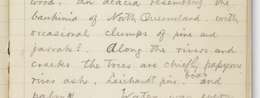 wood. An acacia resembling the
bankinia of North Queensland, with
occasional clumps of pine and
Along the rivers and
creeks the trees are chiefly pappyrus
river ash, Leichardt pine, and
palms. Water was